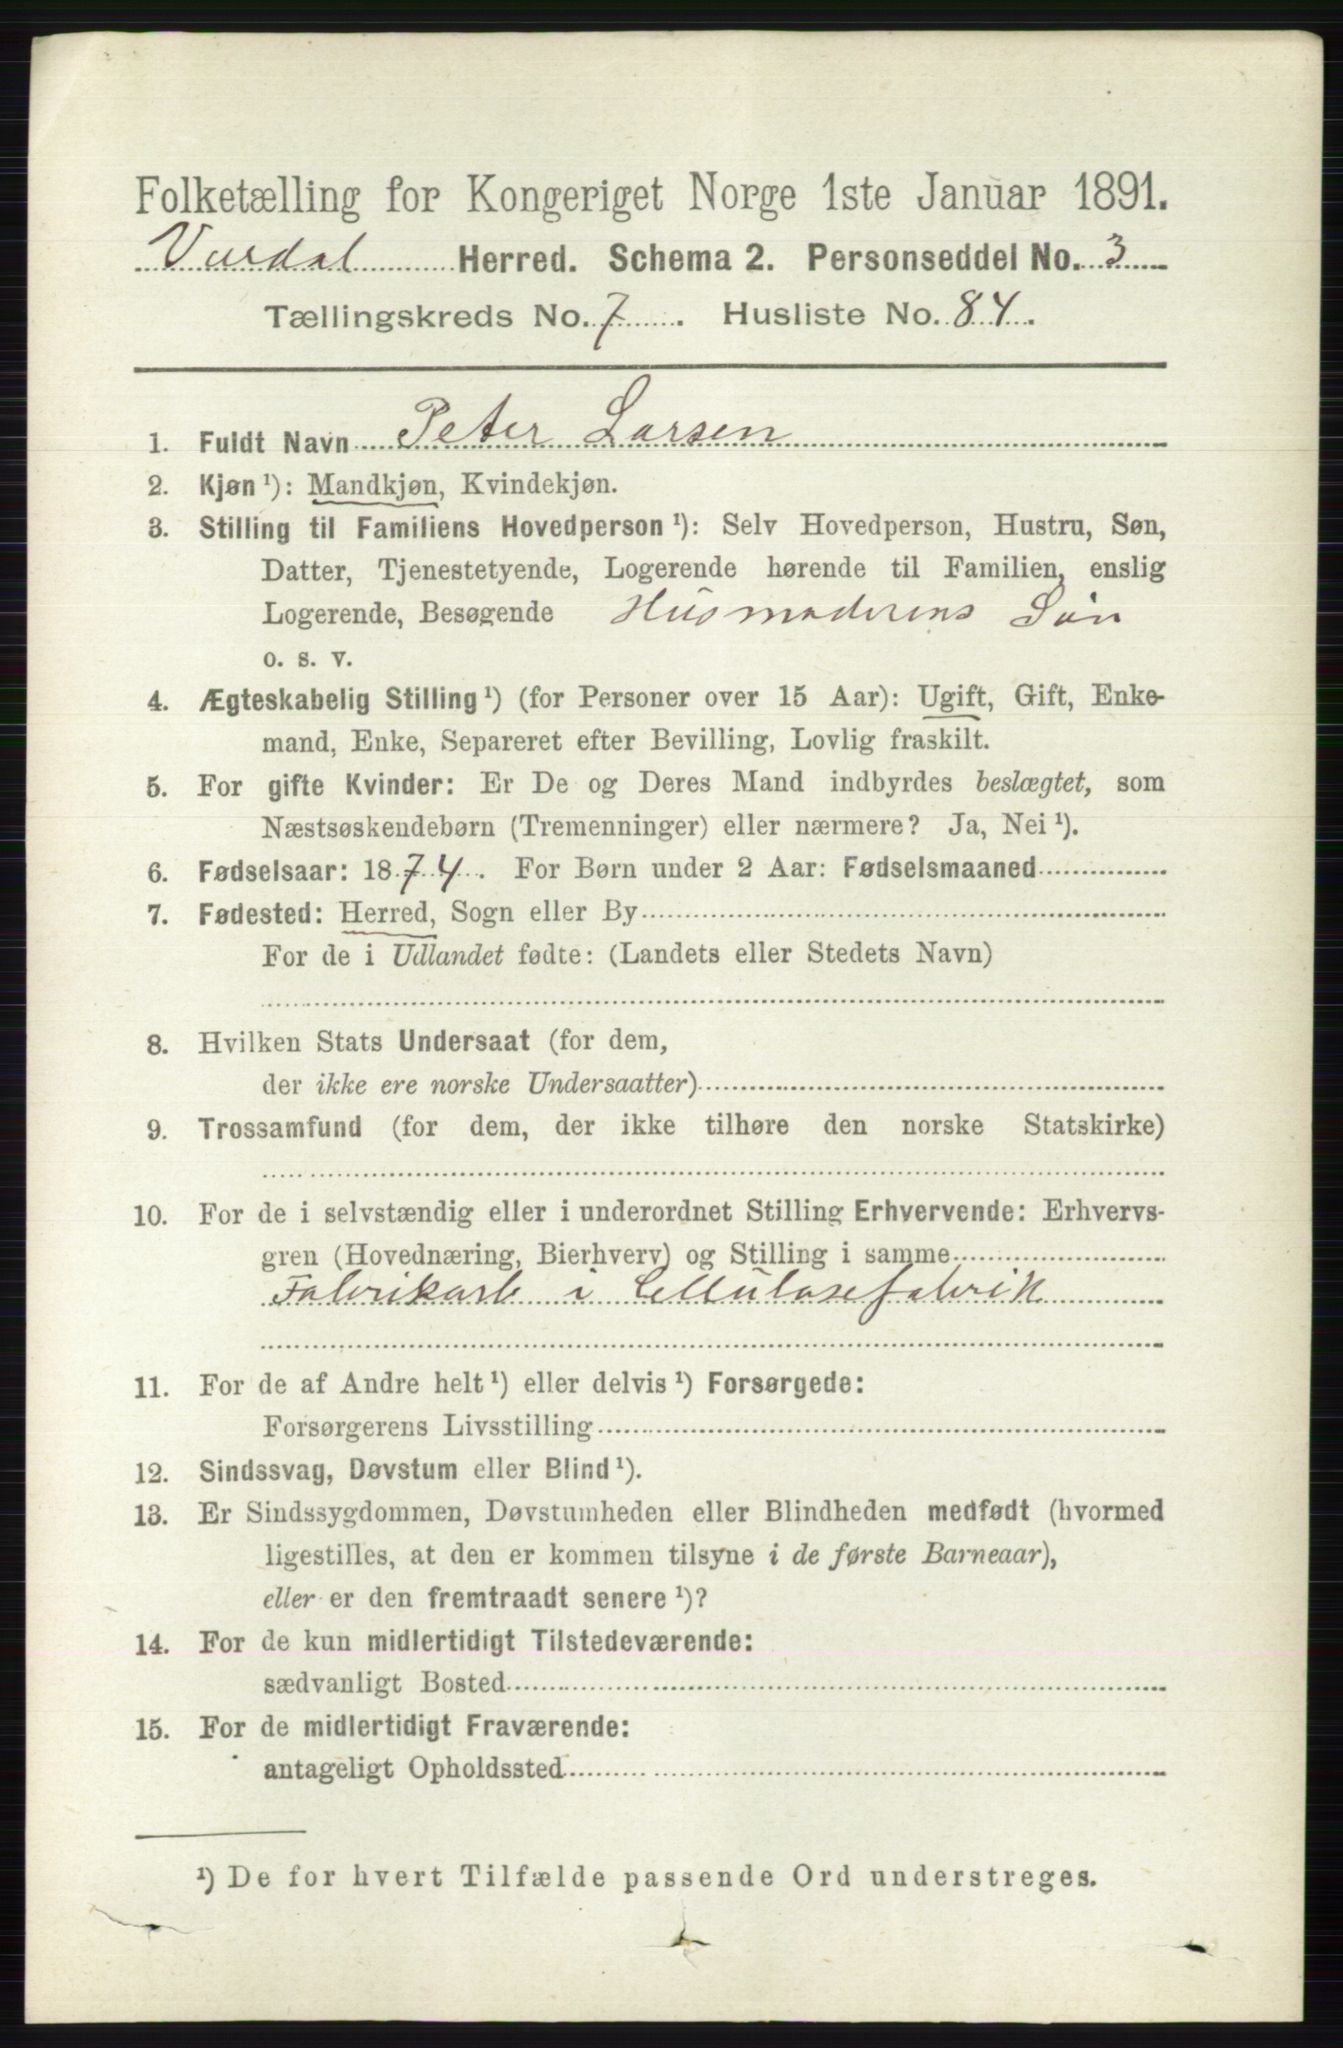 Folketælling for Kongeriget Norge 1ste Januar 1891.
Vardal Herred. Schema 2. Personseddel No. 3
Tællingskreds No. 7. Husliste No. 84.
1. Fuldt Navn Peter Larsen
2. Kjøn ¹): Mandkjøn, Kvindekjøn.
3. Stilling til Familiens Hovedperson ¹): Selv Hovedperson, Hustru, Søn,
Datter, Tjenestetyende, Logerende hørende til Familien, enslig
Logerende, Besøgende Husmoderens Søn
o. s. v.
4. Ægteskabelig Stilling ¹) (for Personer over 15 Aar): Ugift, Gift, Enke-
mand, Enke, Separeret efter Bevilling, Lovlig fraskilt.
5. For gifte Kvinder: Er De og Deres Mand indbyrdes beslægtet, som
Næstsøskendebørn (Tremenninger) eller nærmere? Ja, Nei ¹).
6. Fødselsaar: 1874. For Børn under 2 Aar: Fødselsmaaned
7. Fødested: Herred, Sogn eller By
For de i Udlandet fødte: (Landets eller Stedets Navn)
8. Hvilken Stats Undersaat (for dem,
der ikke ere norske Undersaatter)
9. Trossamfund (for dem, der ikke tilhøre den norske Statskirke)
10. For de i selvstændig eller i underordnet Stilling Erhvervende: Erhvervs-
gren (Hovednæring, Bierhverv) og Stilling i samme
Fabrikarb i Cellulosefabrik
11. For de af Andre helt ¹) eller delvis ¹) Forsørgede:
Forsørgerens Livsstilling
12. Sindssvag, Døvstum eller Blind ¹).
13. Er Sindssygdommen, Døvstumheden eller Blindheden medfødt (hvormed
ligestilles, at den er kommen tilsyne i de første Barneaar),
eller er den fremtraadt senere ¹)?
14. For de kun midlertidigt Tilstedeværende:
sædvanligt Bosted
15. For de midlertidigt Fraværende:
antageligt Opholdssted
¹) De for hvert Tilfælde passende Ord understreges.